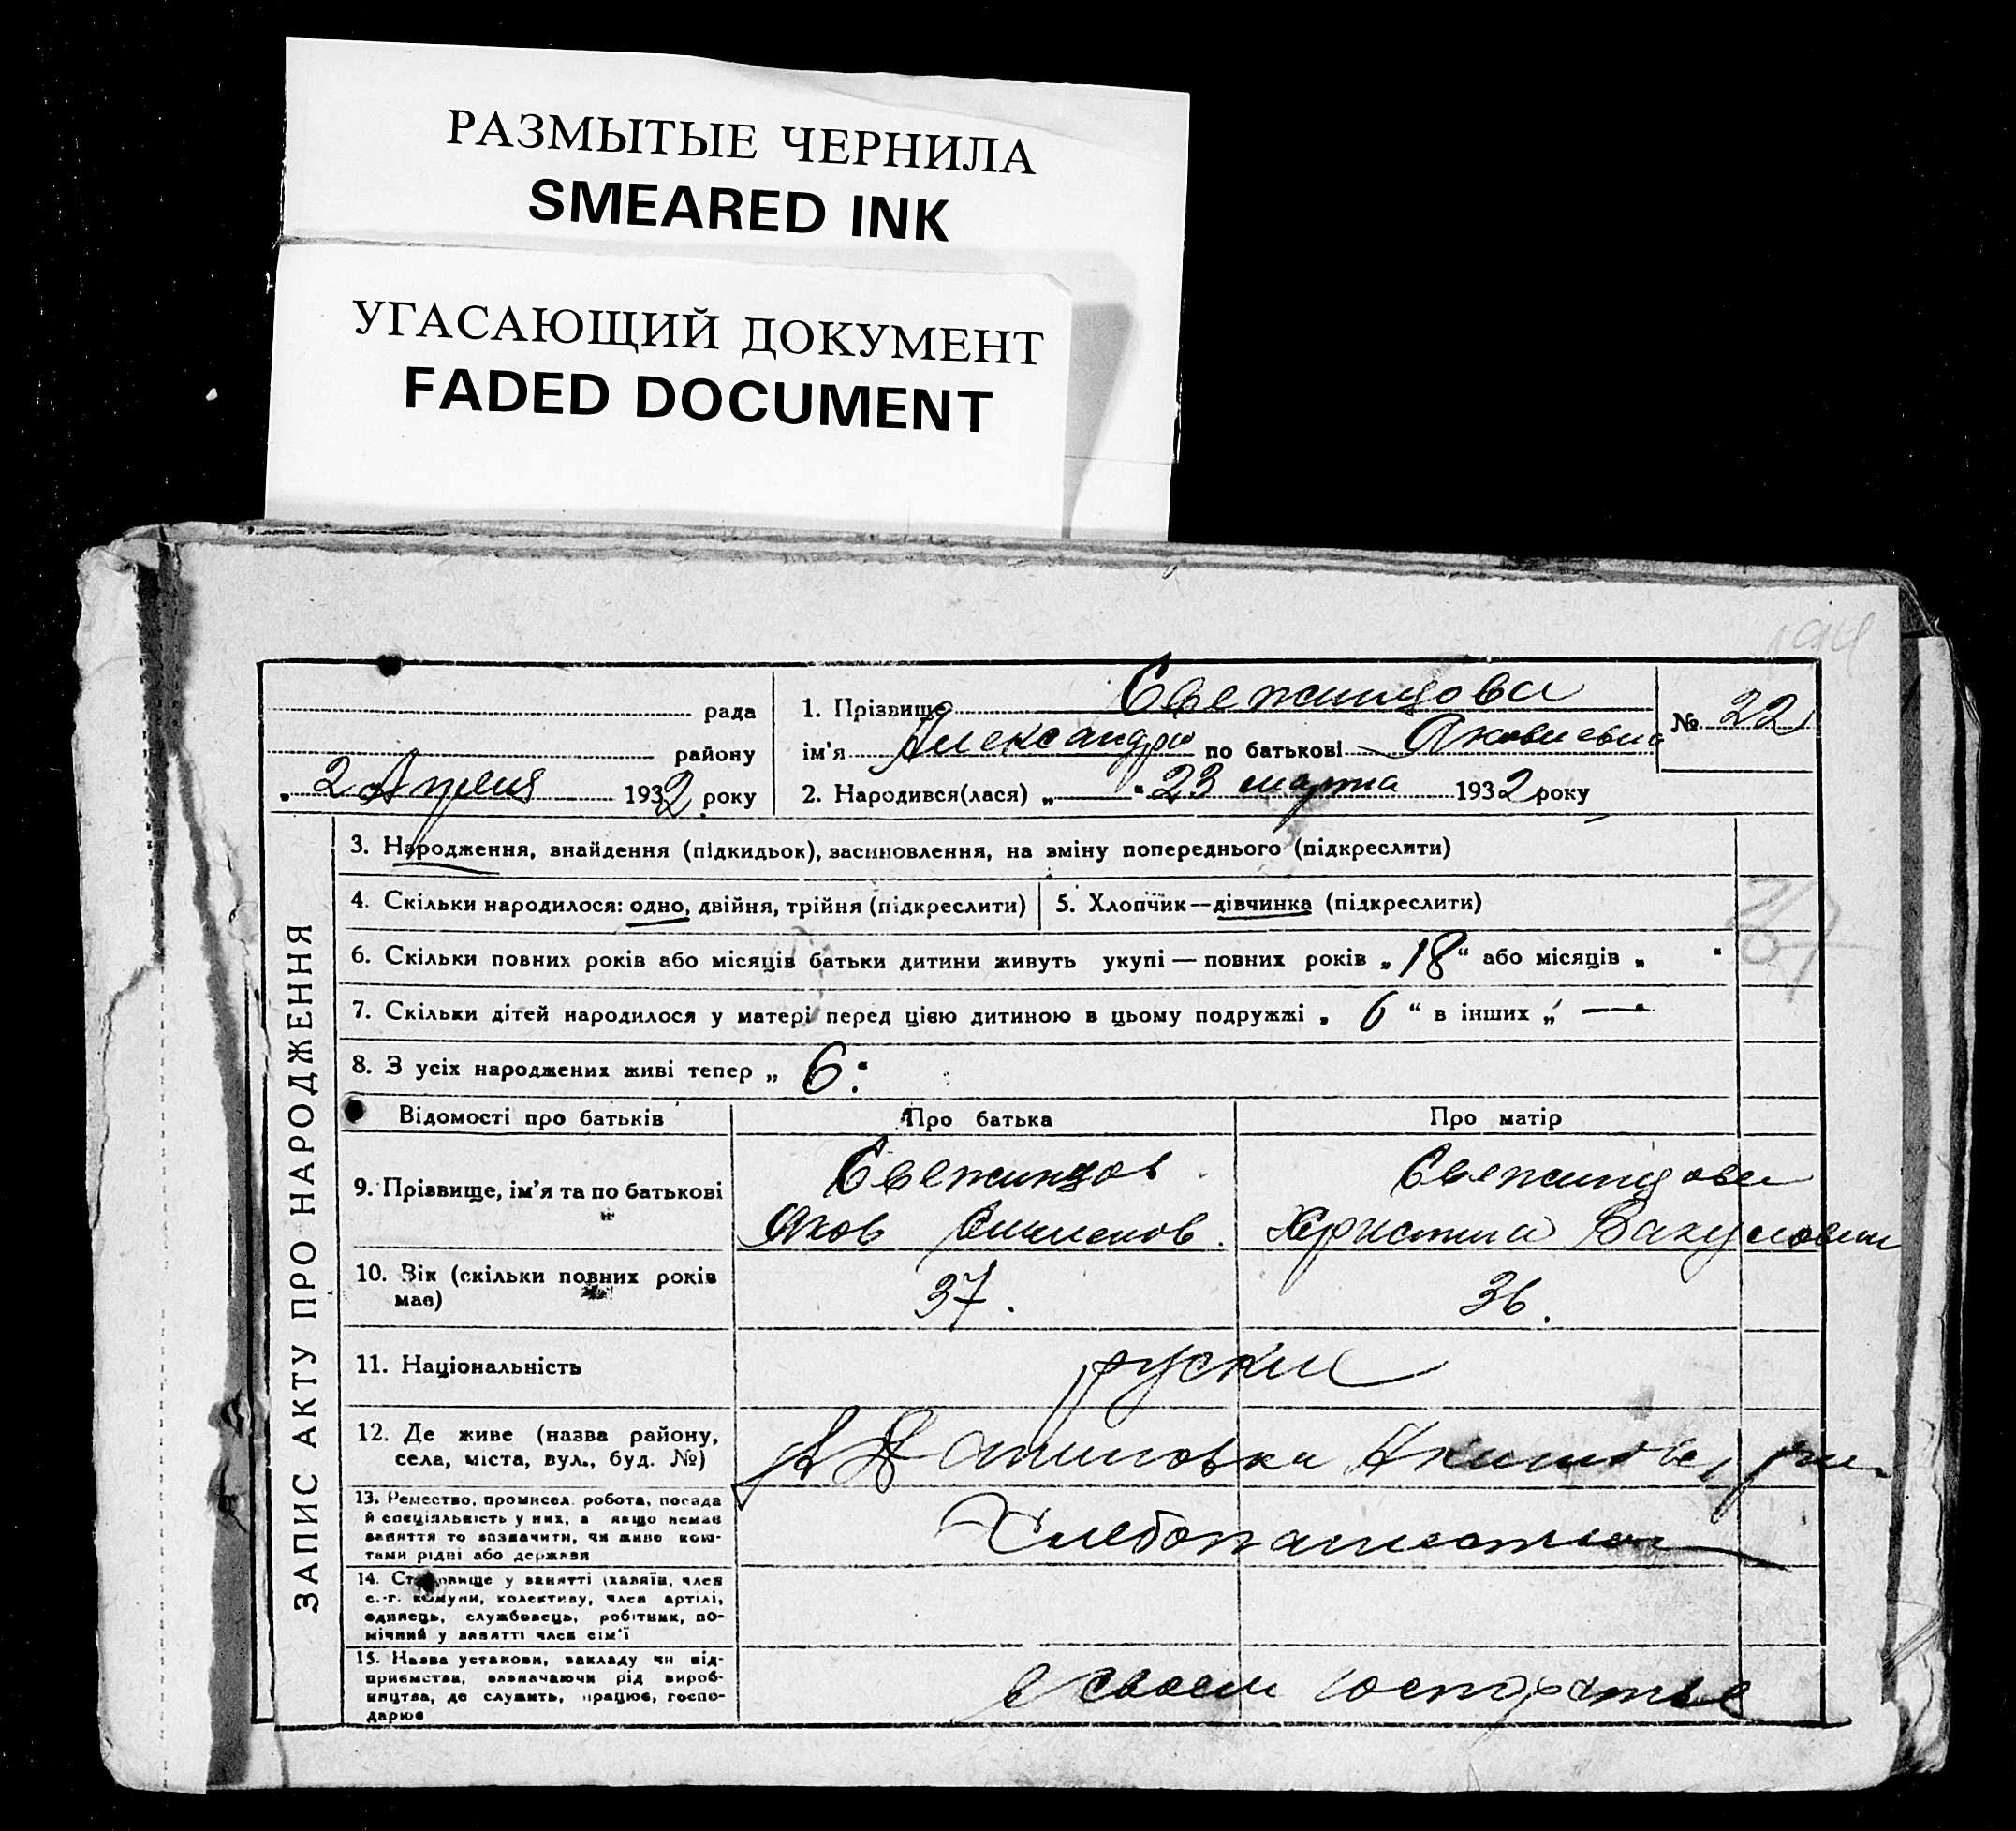 РАЗМЫТЫЕ ЧЕРНИЛА
SMEARED INK
УГАСАЮЩИЙ ДОКУМЕНТ
FADED DOCUMENT
194
рада
району
„ 2 Апреля 1932 року
1. Прізвище Свежинцова
ім'я Александра по батькові Яковлевна
№ 22
2. Народився(лася) „ “ 23 марта 1932 року
ЗАПИС АКТУ ПРО НАРОДЖЕННЯ
3. Народження, знайдення (підкидьок), засиновлення, на зміну попереднього (підкреслити)
4. Скільки народилося: одно, двійня, трійня (підкреслити)
5. Хлопчик—дівчинка (підкреслити)
6. Скільки повних років або місяців батьки дитини живуть укупі — повних років „ 18 “ або місяців „ “
7. Скільки дітей народилося у матері перед цією дитиною в цьому подружжі „ 6 “ в інших „ — “
8. З усіх народжених живі тепер „ 6 “
Відомості про батьків
Про батька
Про матір
9. Прізвище, ім'я та по батькові
Свежинцов
Яков
Свежинцова
Христина Вакуловна
10. Вік (скільки повних років має)
37.
36.
11. Національність
руские
12. Де живе (назва району,
села, міста, вул., буд. №)
13. Ремество, промисел, робота, посада
й спеціяльність у них, а якщо немає
заняття то зазначити, чи живе кош-
тами рідні або держави
Хлебопашество
14. Становище у занятті (хазяїн, член
с.-г. комуни, колективу, член артілі,
одинець, службовець, робітник, по-
мічний у занятті член сім'ї
15. Назва установи, закладу чи під-
приємства, зазначаючи рід вироб-
ництва, де служить, працює, госпо-
дарює
в своем